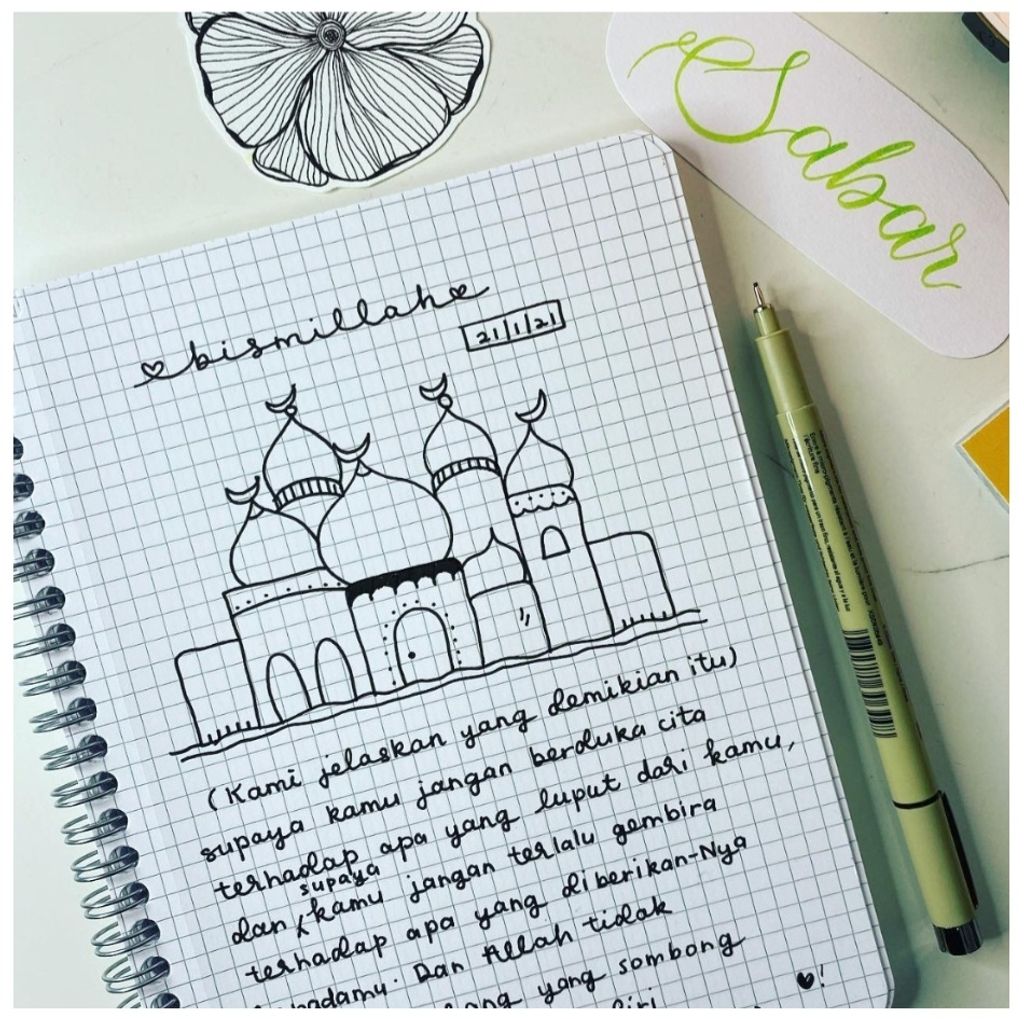 Sabar
bismillah
21/1/21
(Kami jelaskan yang demikian itu)
supaya kamu jangan berduka cita
terhadap apa yang luput dari kamu,
supaya
dan kamu jangan terlalu gembira
terhadap apa yang diberikan-Nya
Dan Allah tidak
yang sombong